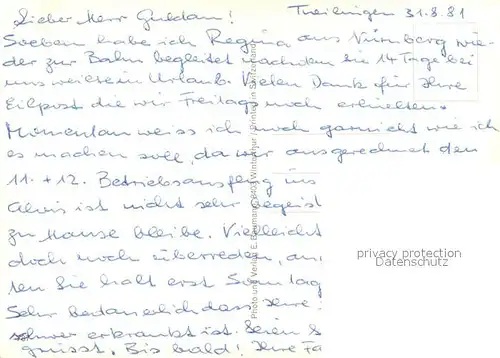 Lieber Herr Guldan! Theilingen 31.8.81
Soeben habe ich Regina aus Nürnberg wie-
der zur Bahn begleitet nachdem sie 14 Tage bei
uns weilte in Urlaub. Vielen Dank für Ihre
Eilpost die wir Freitags noch erhielten.
Momentan weiss ich noch garnicht wie ich
es machen soll, da wir ausgerechnet den
11. + 12. Betriebsausflug ins
Alois ist nicht sehr begeist
zu Hause bleibe. Vielleicht
doch noch überreden, an
ten Sie halt erst Sonntag
Sehr bedauerlich dass Ihre
schwer erkrankt ist. Seien S
grüsst. Bis bald! Ihre Fa
Photo und Verlag E. Baumann, 8401 Winterthur / Printed in Switzerland
privacy protection
Datenschutz